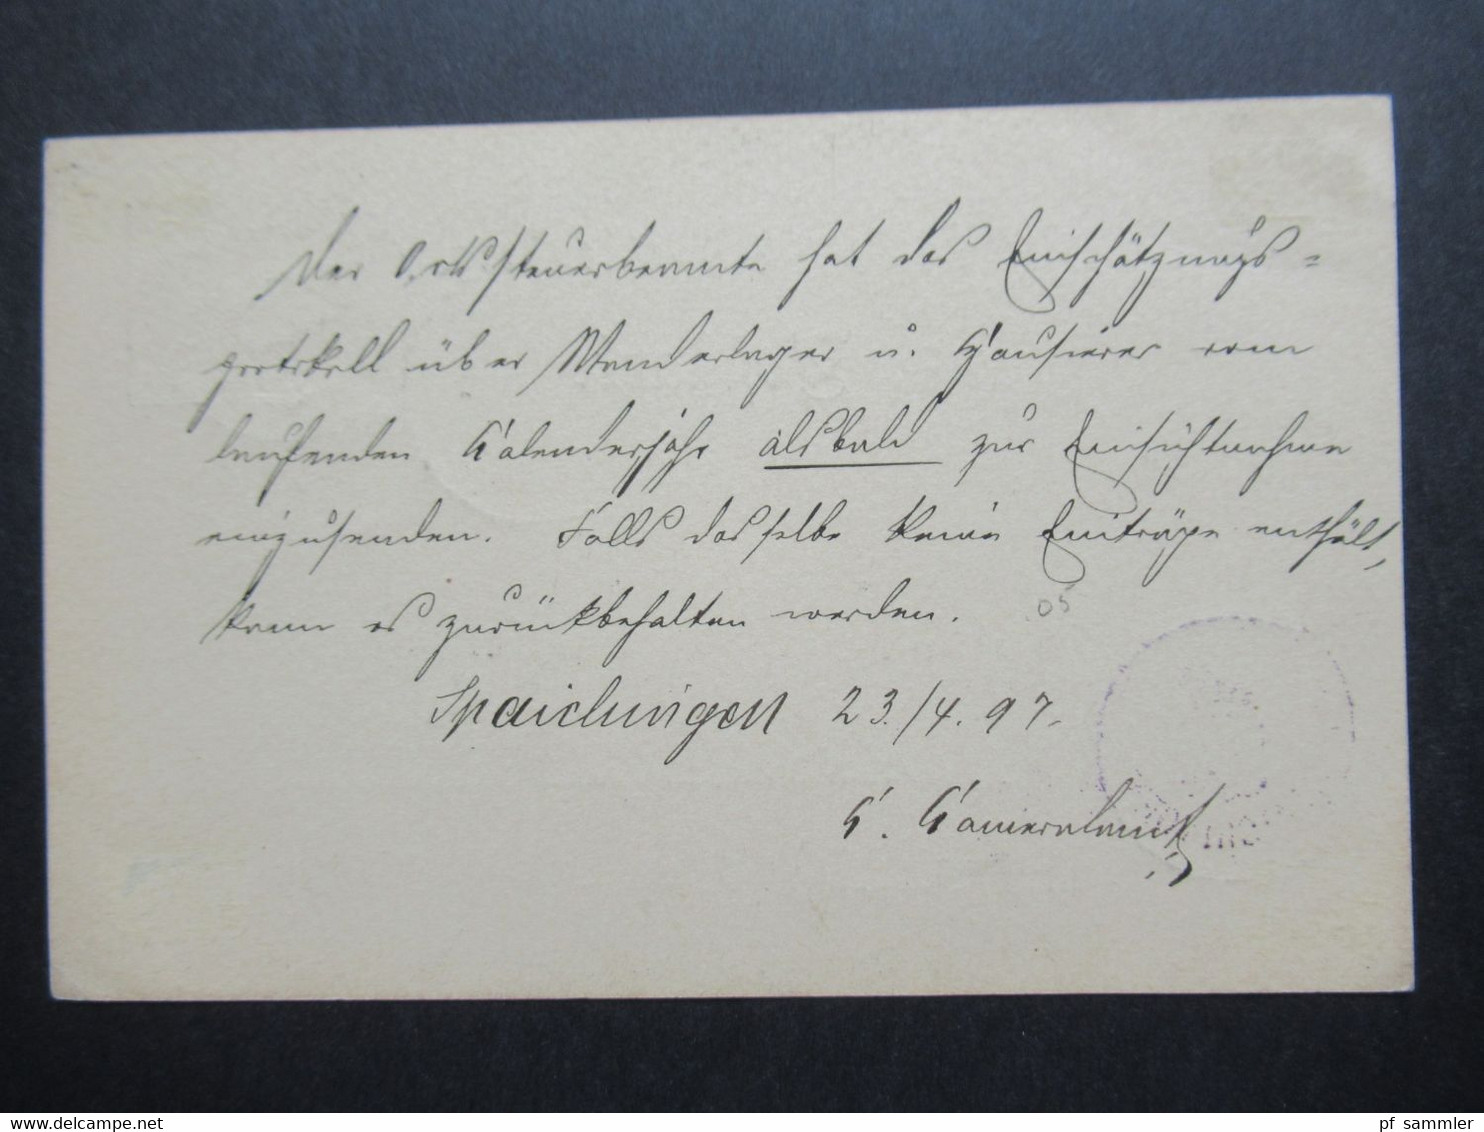 Der Ortssteuerbeamte hat das Einschätzungs-
protokoll über Wanderlager u. Hausierer vom
laufenden Kalenderjahr alsbald zur Einsichtnahme
einzusenden. Falls dasselbe keine Einträge enthält,
kann es zurückbehalten werden.
05
Spaichingen 23./4. 97.
K. Kameralamt
www.delcampe.net
pf_sammler